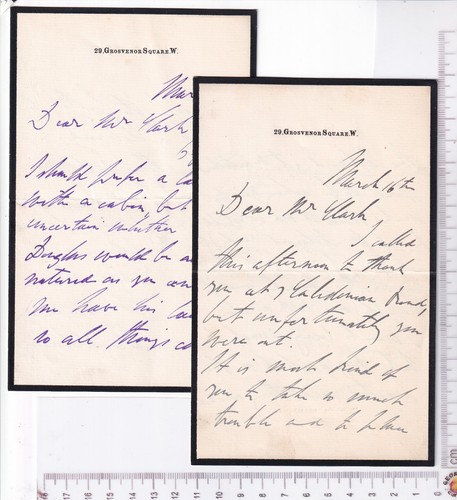 29. Grosvenor Square. W.
Mar
Dear Mr Clark
I should prefer a
with a cabin, but
uncertain whether
Douglas would be
natured as you
me have his
so all things
29. Grosvenor Square. W.
March 16th
Dear Mr Clark
I called
this afternoon to thank
you at 7 Caledonian Road,
but unfortunately you
were out.
It is most kind of
you to take so much
trouble and to have
18 17 16 15 14 13 12 11 10 9 8 7 6 5 4 3 2 1 0
cm